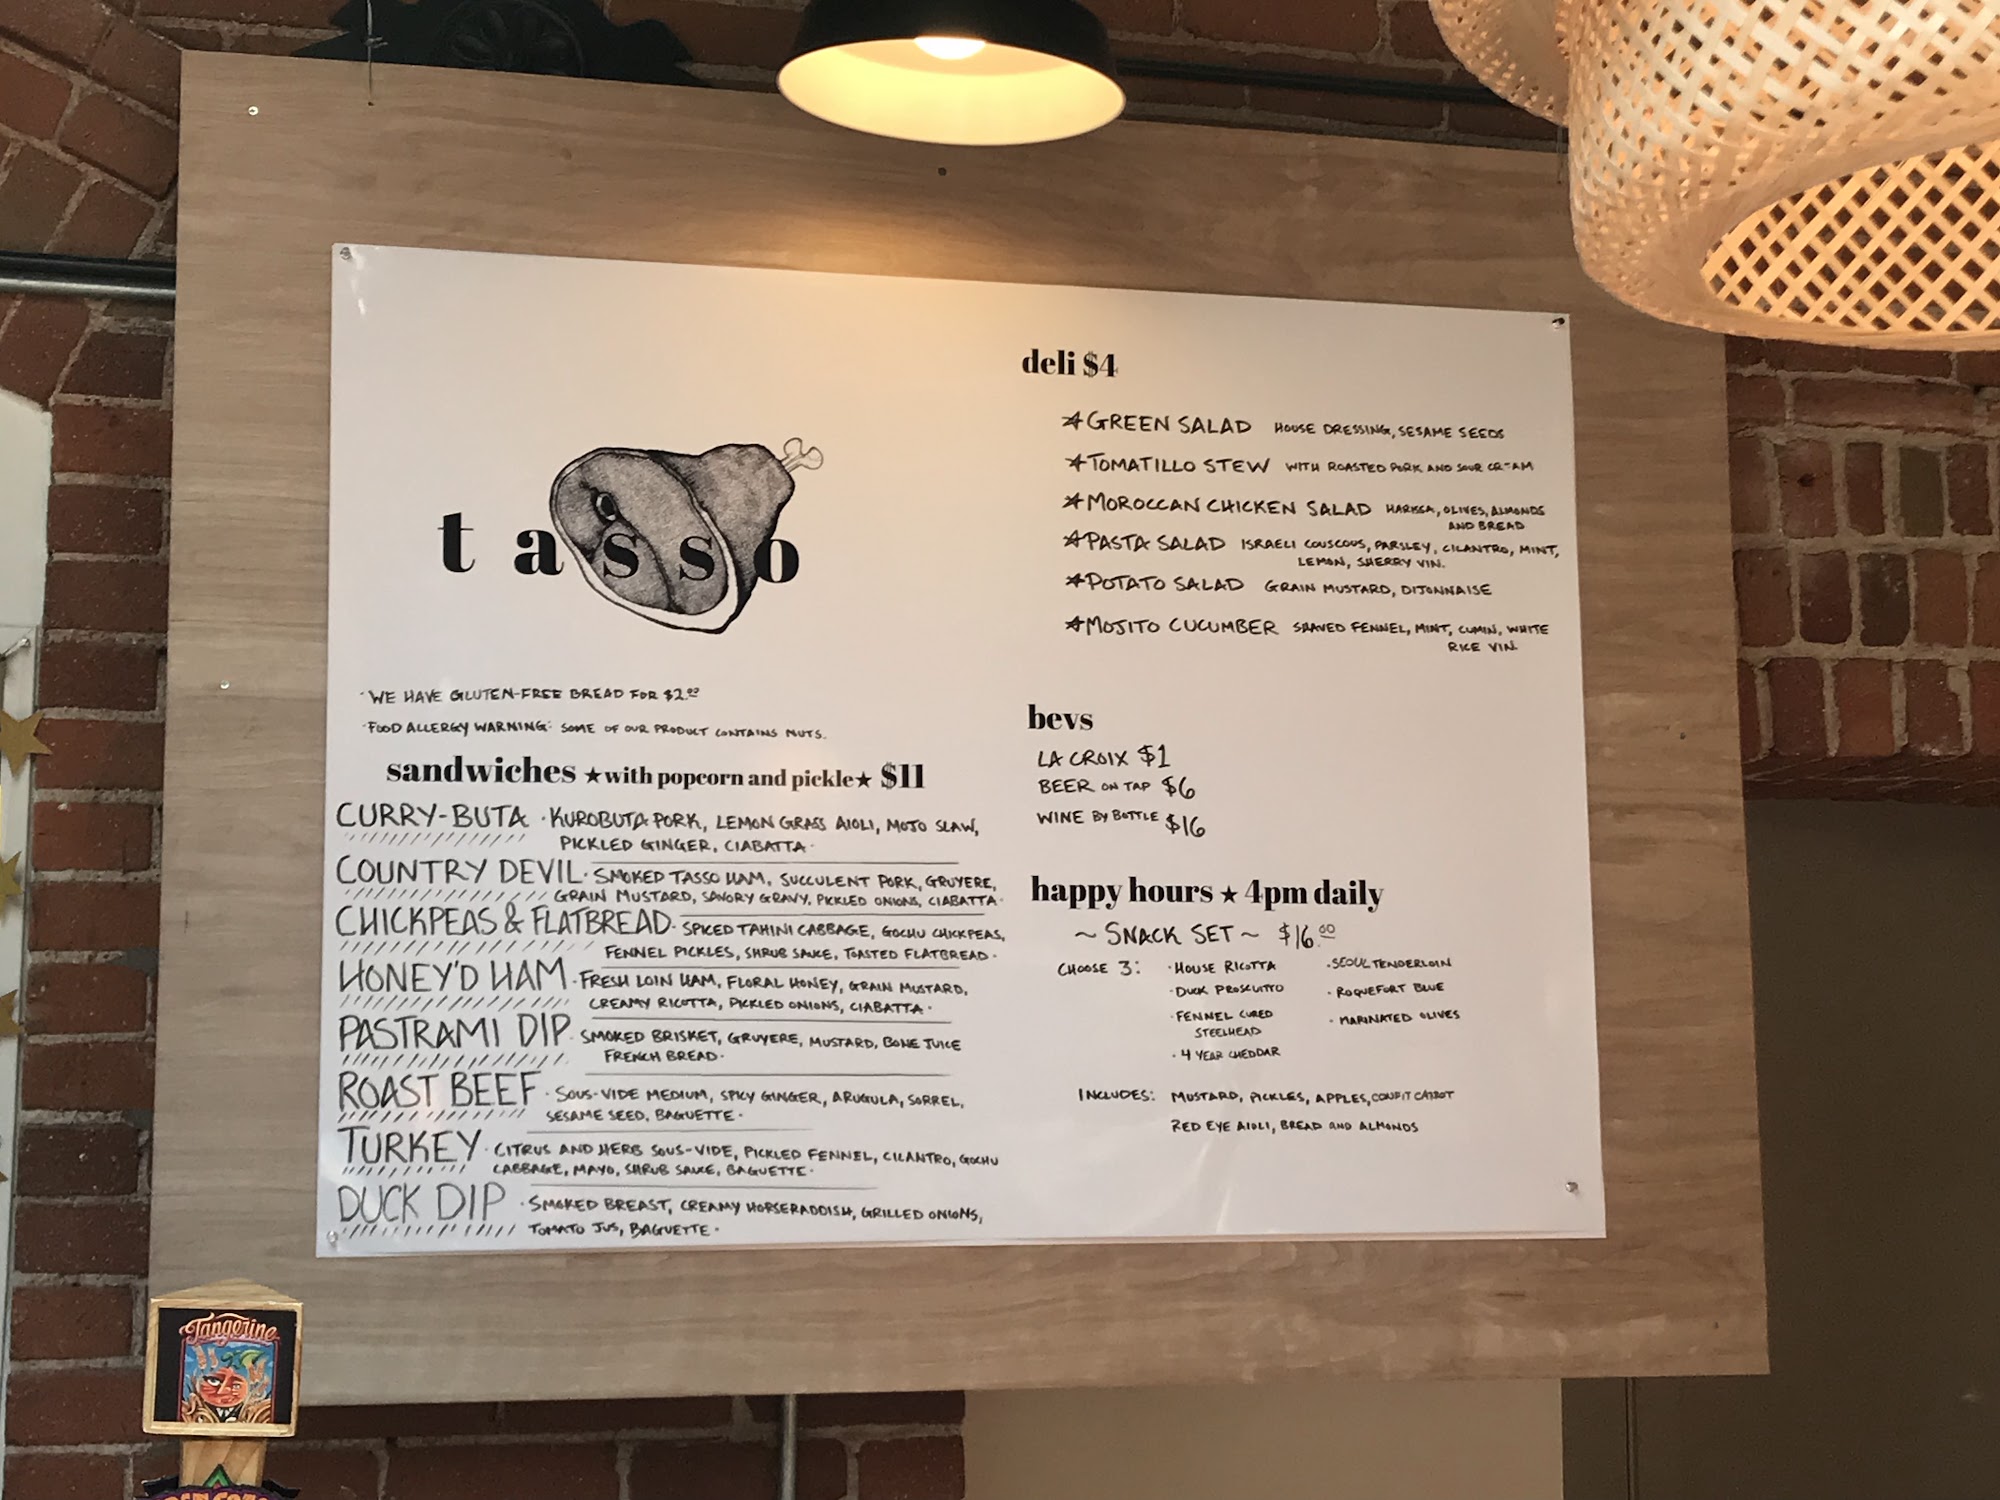 tasso
· WE HAVE GLUTEN-FREE BREAD FOR $2.00
· FOOD ALLERGY WARNING: SOME OF OUR PRODUCT CONTAINS NUTS.
sandwiches ★with popcorn and pickle★ $11
CURRY-BUTA · KUROBUTA PORK, LEMON GRASS AIOLI, MOJO SLAW,
PICKLED GINGER, CIABATTA ·
COUNTRY DEVIL · SMOKED TASSO HAM, SUCCULENT PORK, GRUYERE,
GRAIN MUSTARD, SAVORY GRAVY, PICKLED ONIONS, CIABATTA ·
CHICKPEAS & FLATBREAD · SPICED TAHINI CABBAGE, GOCHU CHICKPEAS,
FENNEL PICKLES, SHRUB SAUCE, TOASTED FLATBREAD ·
HONEY'D HAM · FRESH LOIN HAM, FLORAL HONEY, GRAIN MUSTARD,
CREAMY RICOTTA, PICKLED ONIONS, CIABATTA ·
PASTRAMI DIP · SMOKED BRISKET, GRUYERE, MUSTARD, BONE JUICE
FRENCH BREAD ·
ROAST BEEF · SOUS-VIDE MEDIUM, SPICY GINGER, ARUGULA, SORREL,
SESAME SEED, BAGUETTE ·
TURKEY · CITRUS AND HERB SOUS-VIDE, PICKLED FENNEL, CILANTRO, GOCHU
CABBAGE, MAYO, SHRUB SAUCE, BAGUETTE ·
DUCK DIP · SMOKED BREAST, CREAMY HORSERADDISH, GRILLED ONIONS,
TOMATO JUS, BAGUETTE ·
deli $4
★ GREEN SALAD HOUSE DRESSING, SESAME SEEDS
★ TOMATILLO STEW WITH ROASTED PORK AND SOUR CREAM
★ MOROCCAN CHICKEN SALAD HARISSA, OLIVES, ALMONDS
AND BREAD
★ PASTA SALAD ISRAELI COUSCOUS, PARSLEY, CILANTRO, MINT,
LEMON, SHERRY VIN.
★ POTATO SALAD GRAIN MUSTARD, DIJONNAISE
★ MOJITO CUCUMBER SHAVED FENNEL, MINT, CUMIN, WHITE
RICE VIN.
bevs
LA CROIX $1
BEER ON TAP $6
WINE BY BOTTLE $16
happy hours ★ 4pm daily
~ SNACK SET ~ $16.00
CHOOSE 3: · HOUSE RICOTTA · SEOUL TENDERLOIN
· DUCK PROSCUITTO · ROQUEFORT BLUE
· FENNEL CURED · MARINATED OLIVES
STEELHEAD
· 4 YEAR CHEDDAR
INCLUDES: MUSTARD, PICKLES, APPLES, CONFIT CARROT
RED EYE AIOLI, BREAD AND ALMONDS
Tangerine